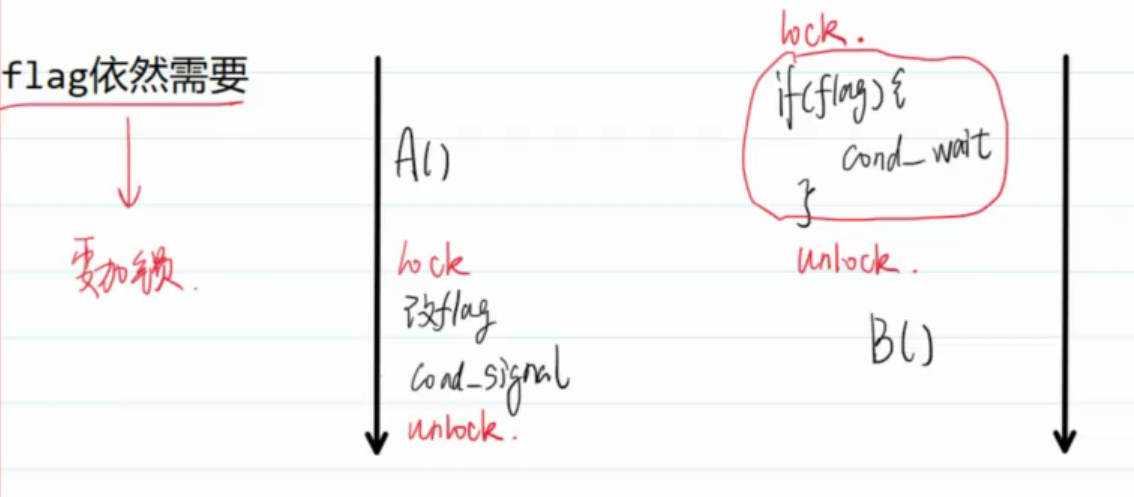 flag依然需要
要加锁.
A()
lock
改flag
cond_signal
unlock.
lock.
if(flag){
cond_wait
}
unlock.
B()